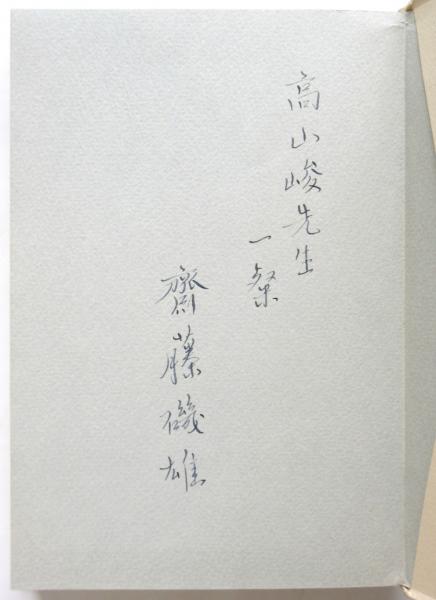 高山峻先生
一粲
齋藤磯雄